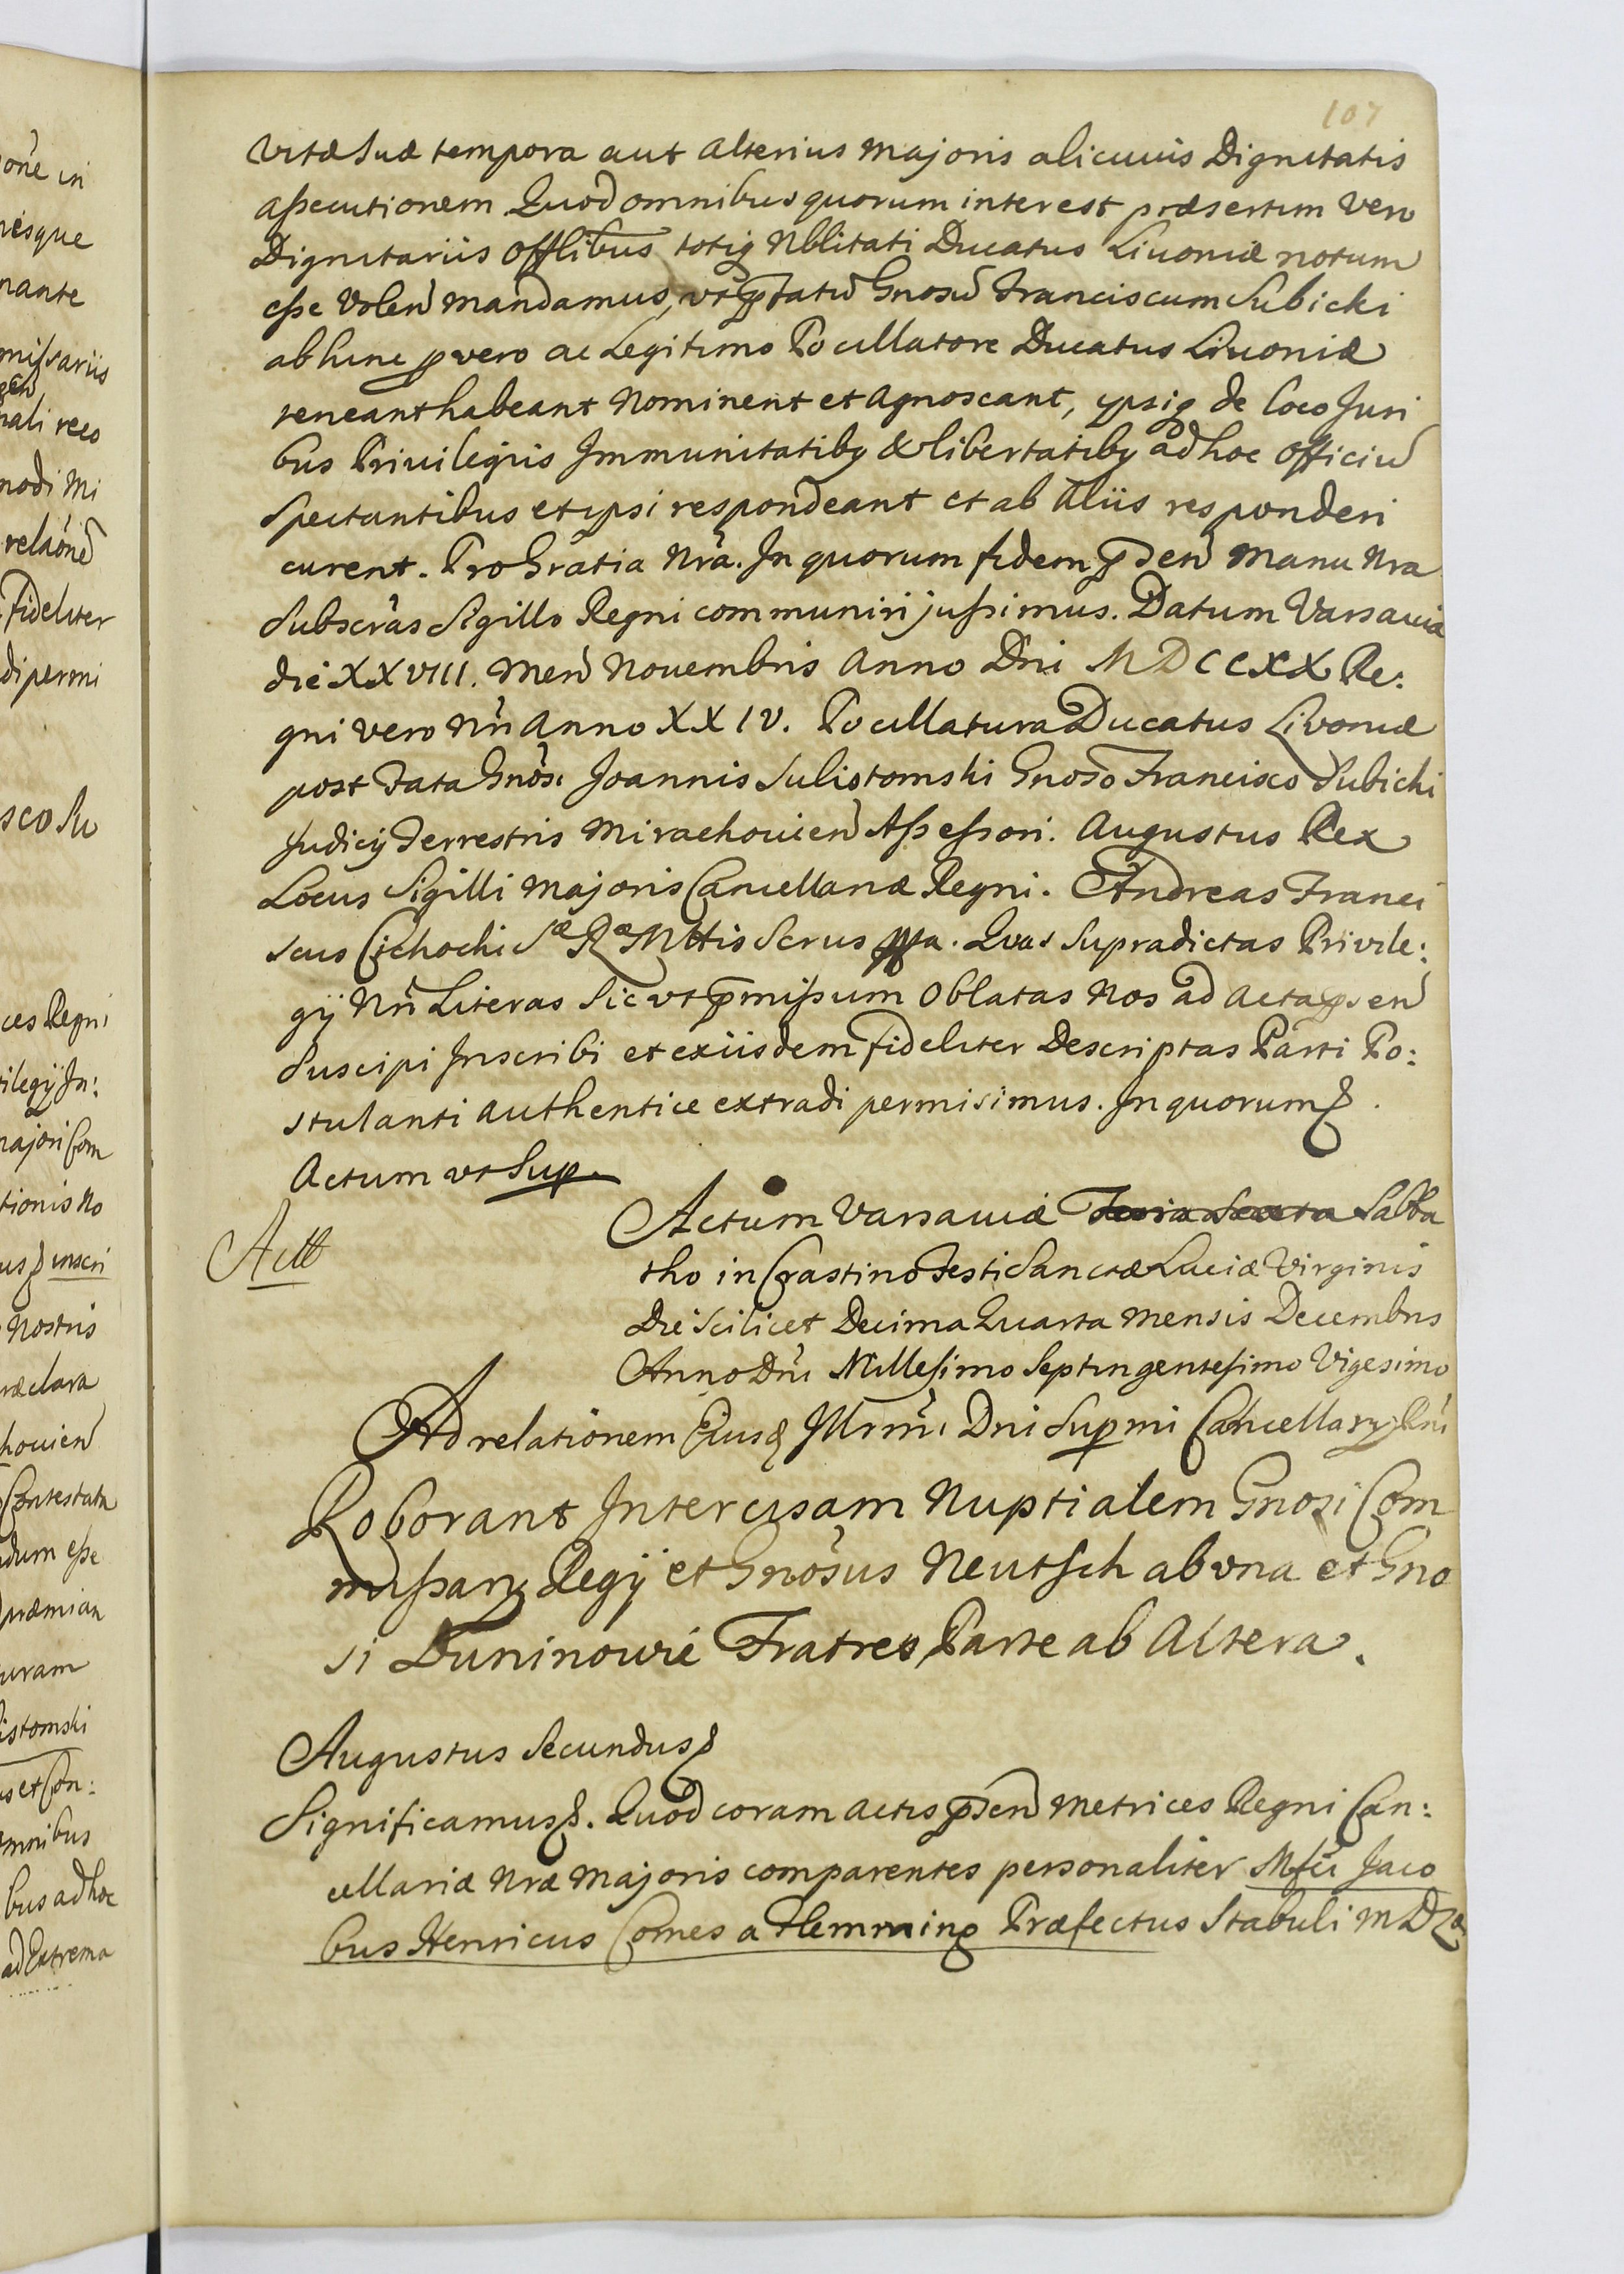 107
Vitæ Suæ tempora aut alterius Majoris alicuius Dignitatis
aßecutionem Quod omnibus quorum interest præsertim vero
Dignitariis Offlibus totiq Nblitati Ducatus Livoniæ notum
eße Volen mandamus, ut pftatu Gnosu Franciscum Subicki
ab hinc p vero ac Legitimo Pocillatore Ducatus Livoniæ
teneant habeant Nominent et agnoscant, ipsiq de loco Juri
bus Privilegiis Immunitatibq & libertatibq ad hoc Officiu
Spectantibus et ipsi respondeant et ab aliis responderi
curent. Pro Gratia Nra. In quorum fidem psen Manu Nra
Subscras Sigillo Regni communiri jußimus. Datum Varsaviæ
die XXVIII. Men Novembris Anno Dni MDCCXX Re:
gni vero Nri Anno XXIV. Pocillatura Ducatus Livoniæ
post Fata Gnosi Joannis Sulistomski Gnoso Francisco Subicki
Judicij Terrestris Mirachovien Aßeßori. Augustus Rex
Locus Sigilli Majoris Cancellariæ Regni. Andreas Franci
scus Cichocki Sæ Ræ Mttis Scrus mpa. Quas Supradictas Privile:
gij Nri Literas Sic ut pmißum Oblatas Nos ad Acta psen
Suscipi Inscribi et exiisdem fideliter Descriptas Parti Po:
stulanti authentice extradi permisimus. In quorum &.
Actum ut Sup.
Actt
Actum Varsaviæ Feria Sexta Sabba
tho in Crastino Festi Sanctæ Luciæ Virginis
Die Scilicet Decima Quarta Mensis Decembris
Anno Dni Millesimo Septingentesimo Vigesimo
Ad relationem Eiusd Illrmi Dni Supmi Cancellarij Rni
Roborant Intercisam Nuptialem Gnosi Com
mißarij Regij et Gnosus Neutsch ab una et Gno
si Duninowie Fratres Parte ab Altera.
Augustus Secundus &
Significamus &. Quod coram actis psen Metrices Regni Can:
cellariæ Nræ Majoris comparentes personaliter Mfci Jaco
bus Henricus Comes a Flemming Præfectus Stabuli M D